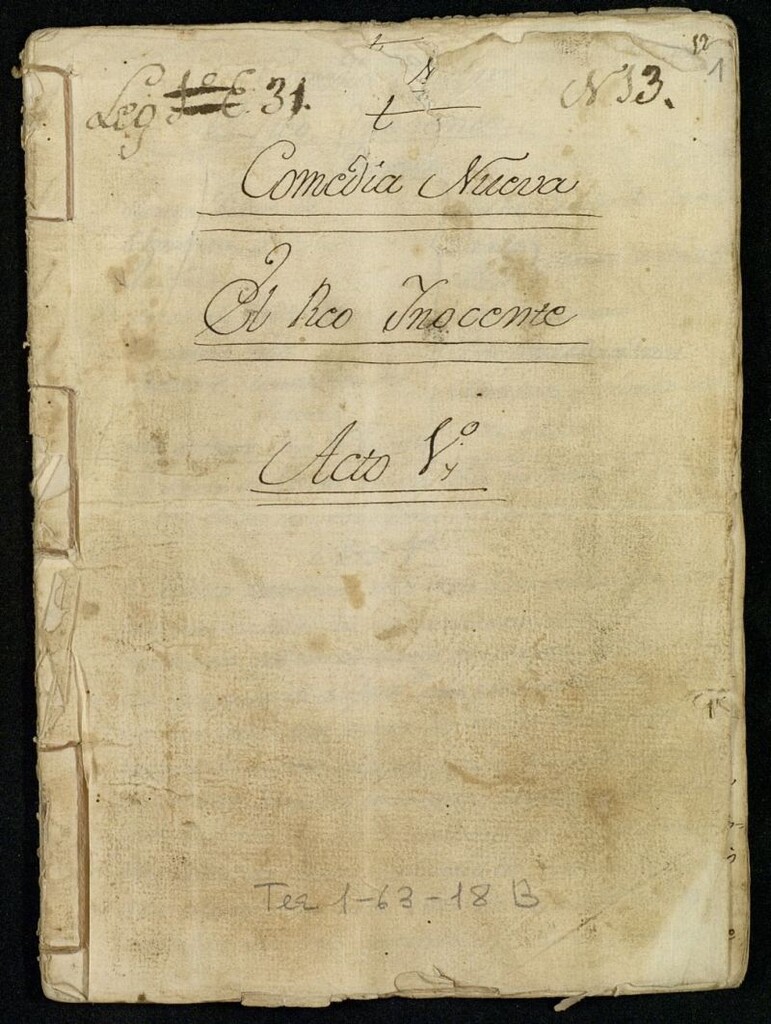 12
1
N
Leg 1º E. 31. N 13.
t
Comedia Nueva
El Reo Inocente
Acto 1º
Tea 1-63-18 B